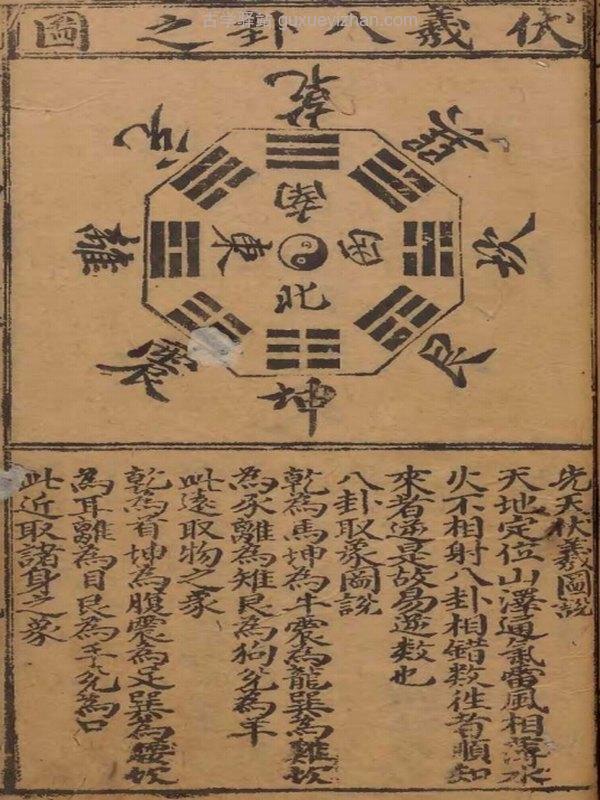 古学驿站 guxueyizhan.com
伏羲八卦之圖
乾
巽
坎
艮
坤
震
離
兊
南
東
西
北
先天伏羲圖説
天地定位山澤通氣雷風相薄水
火不相射八卦相錯数徃者順知
來者逆是故易逆数也
八卦取象圖説
乾為馬坤為牛震為龍巽為雞坎
為豕離為雉艮為狗兊為羊
此遠取物之象
乾為首坤為腹震為足巽為腰坎
為耳離為目艮為手兊為口
此近取諸身之象